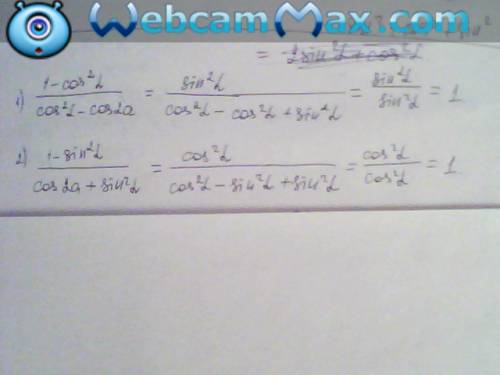 WebcamMax.com
= -2sin²α + cos²α
1) (1-cos²α)/(cos²α-cos2α) = sin²α/(cos²α - cos²α + sin²α) = sin²α/sin²α = 1
2) (1-sin²α)/(cos2α + sin²α) = cos²α/(cos²α - sin²α + sin²α) = cos²α/cos²α = 1